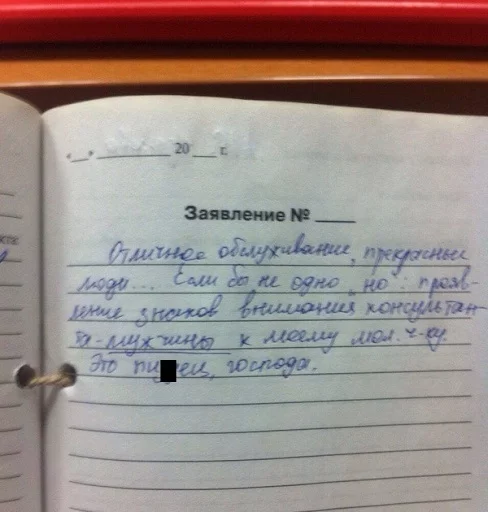 «__» ________ 20 ___ г.
Заявление № ____
Отличное обслуживание, прекрасные
люди... Если бы не одно "но": прояв-
ление знаков внимания консультан-
та-мужчины к моему мол. ч-ку.
Это пи ец, господа.